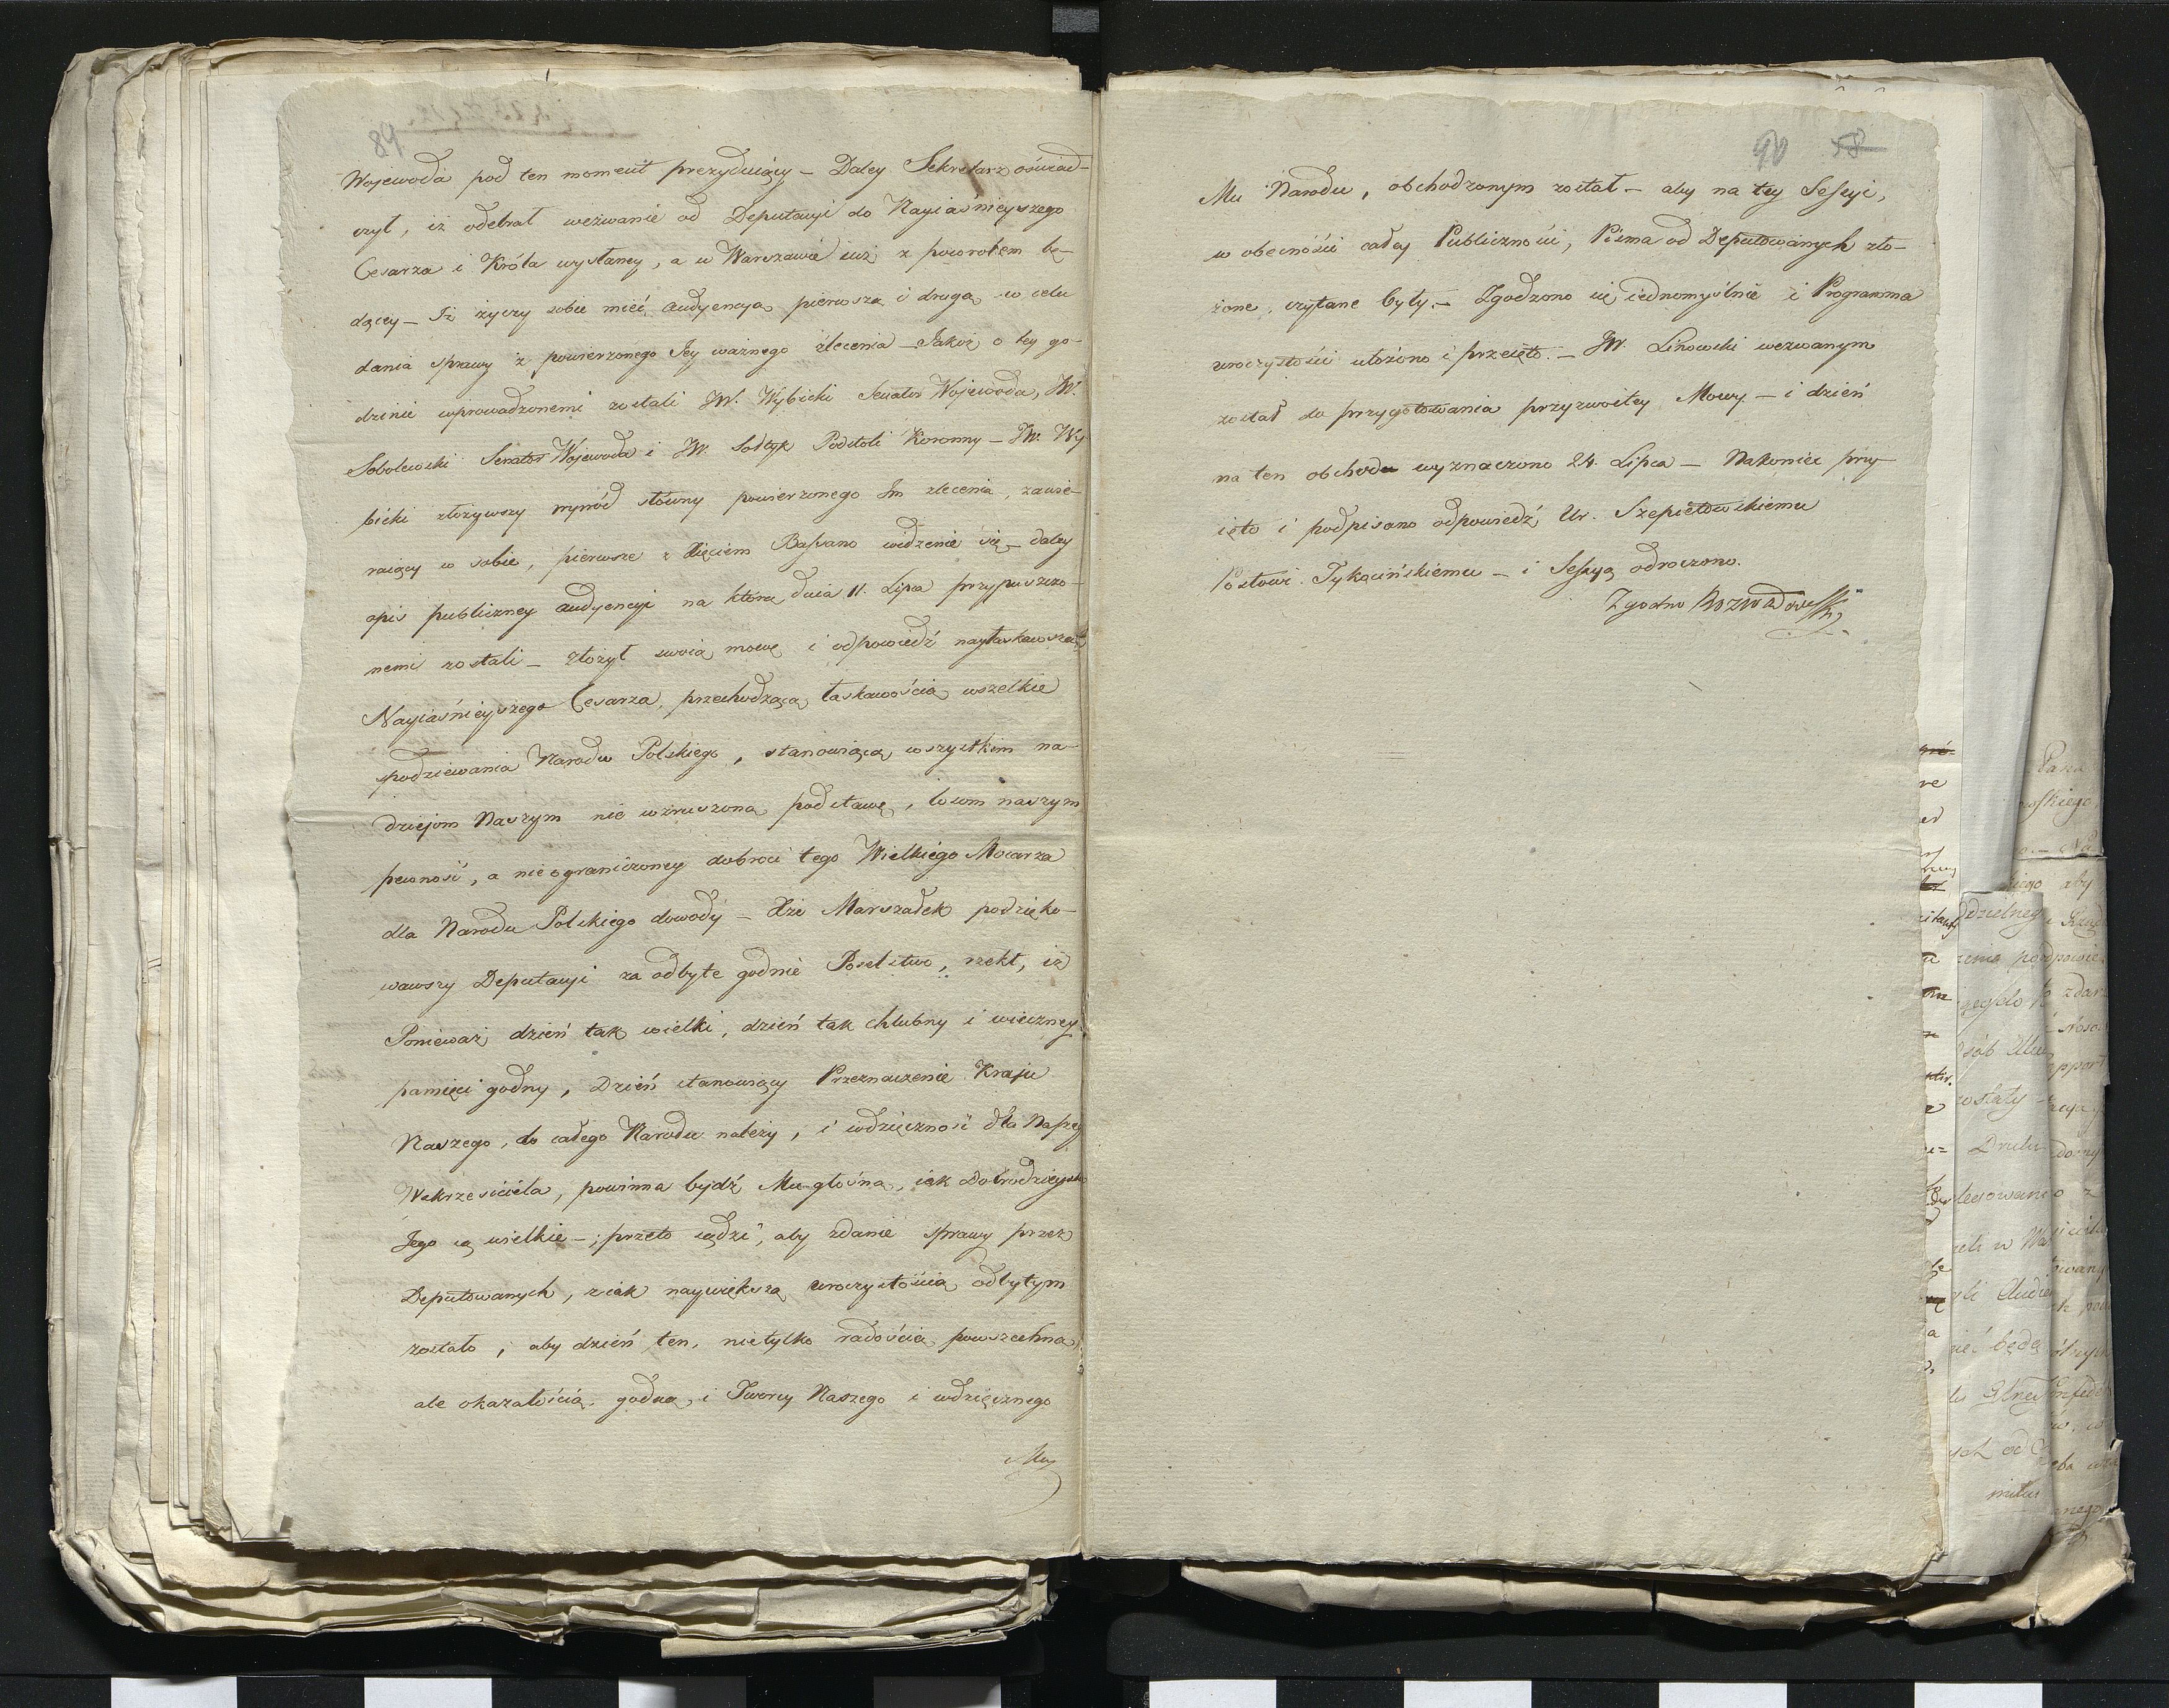 89
Wojewoda pod ten moment prezyduiący – Daley Sekretarz oświad-
czył, iż odebrał wezwanie od Deputacyi do Nayiaśnieyszego
Cesarza i Króla wysłaney, a w Warszawie iuż z powrotem bę-
dącey – Iż życzy sobie mieć audyencyą pierwszą i drugą w celu
dania sprawy z powierzonego Jey ważnego zlecenia – Jakoż o tey go-
dzinie wprowadzonemi zostali JW. Wybicki Senator Wojewoda, JW.
Sobolewski Senator Wojewoda i JW. Sołtyk Podstoli Koronny – JW. Wy-
bicki złożywszy wywód słówny powierzonego Im zlecenia, zawie-
raiący w sobie, pierwsze z Xięciem Bassano widzenie się – daley
opis publiczney audyencyi na którą dnia 11. Lipca przypuszczo-
nemi zostali – złożył swoią mowę i odpowiedź nayłaskawszą
Nayiaśnieyszego Cesarza, przechodzącą łaskawością wszelkie
spodziewania Narodu Polskiego, stanowiącą wszystkim na-
dziejom Naszym nie wzruszoną podstawę, losom naszym
pewność, a nieograniczoney dobroci tego Wielkiego Mocarza
dla Narodu Polskiego dowody – Xże Marszałek podzięko-
wawszy Deputacyi za odbyte godnie Poselstwo, rzekł, iż
Ponieważ dzień tak wielki, dzień tak chlubny i wieczney
pamięci godny, Dzień stanowiący Przeznaczenie Kraju
Naszego, do całego Narodu należy, i wdzięczność dla Naszego
Wskrzesiciela, powinna bydź Mu głośna, iak Dobrodzieystwa
Jego są wielkie –; przeto sądzi, aby zdanie sprawy przez
Deputowanych, z iak naywiększą uroczystością odbytym
zostało, aby dzień ten, nietylko radością powszechną,
ale okazałością, godną, i Twórcy Naszego i wdzięcznego
Mu
90 58
Mu Narodu, obchodzonym został – aby na tey Sessyi,
w obecności całey Publiczności, Pisma od Deputowanych zło-
żone, czytane były. – Zgodzono się iednomyślnie i Programma
uroczystości ułożono i przeięto. – JW. Linowski wezwanym
został do przygotowania przyzwoitey Mowy – i dzień
na ten obchod wyznaczono 24. Lipca – Nakoniec przy-
ięto i podpisano odpowiedź Ur. Szepietowskiemu
Posłowi Tykocińskiemu – i Sessyą odroczono.
Zgodno Rozwadowski